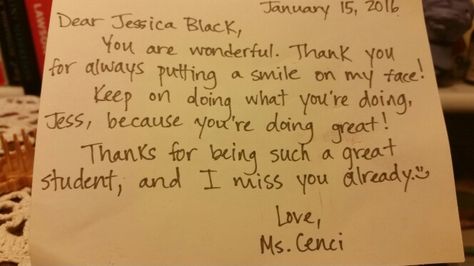 LAWSON
January 15, 2016
Dear Jessica Black,
You are wonderful. Thank you
for always putting a smile on my face!
Keep on doing what you're doing,
Jess, because you're doing great!
Thanks for being such a great
student, and I miss you already.
Love,
Ms. Cenci